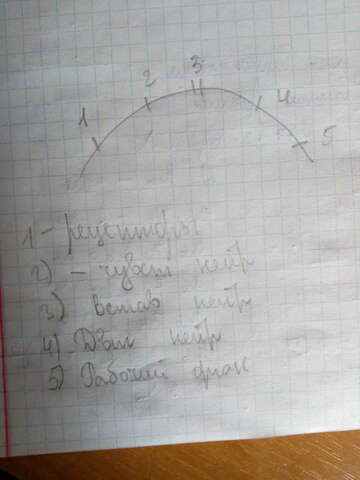 1 2 3 4 5
1 - рецепторы
2) - чувст нейр
3) встав нейр
4) Двиг нейр
5) Рабочий орган